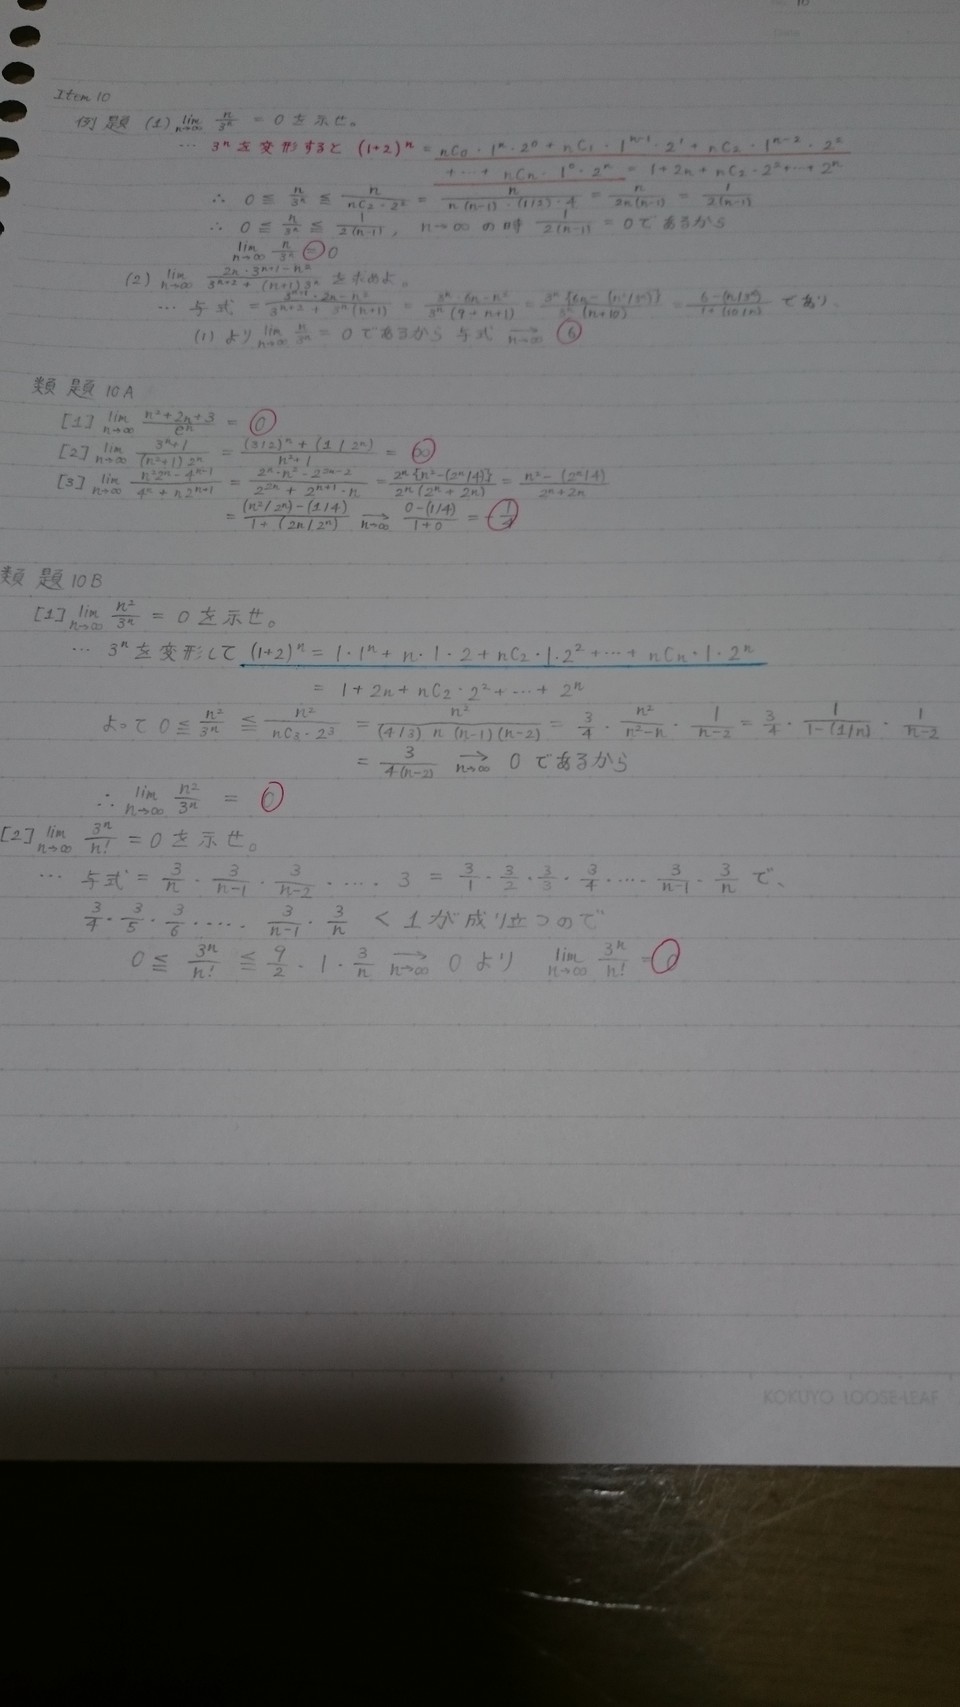 10
Item 10
例題 (1) lim n→∞ n/3ⁿ = 0 を示せ。
… 3ⁿを変形すると (1+2)ⁿ = nC₀・1ⁿ・2⁰ + nC₁・1ⁿ⁻¹・2¹ + nC₂・1ⁿ⁻²・2²
+…+ nCn・1⁰・2ⁿ = 1+2n+nC₂・2²+…+2ⁿ
∴ 0 ≦ n/3ⁿ ≦ n/(nC₂・2²) = n/(n(n-1)・(1/2)・4) = n/(2n(n-1)) = 1/(2(n-1))
∴ 0 ≦ n/3ⁿ ≦ 1/(2(n-1)), n→∞ の時 1/(2(n-1)) = 0 であるから
lim n→∞ n/3ⁿ = 0
(2) lim n→∞ (2n・3ⁿ⁺¹-n²)/(3ⁿ⁺²+(n+1)3ⁿ) を求めよ。
… 与式 = (3ⁿ⁺¹・2n-n²)/(3ⁿ⁺²+3ⁿ(n+1)) = (3ⁿ・6n-n²)/(3ⁿ(9+n+1)) = 3ⁿ{6n-(n²/3ⁿ)}/(3ⁿ(n+10)) = (6-(n/3ⁿ))/(1+(10/n)) であり、
(1) より lim n→∞ n/3ⁿ = 0 であるから 与式 →n→∞ 6
類題 10A
[1] lim n→∞ (n²+2n+3)/eⁿ = 0
[2] lim n→∞ (3ⁿ+1)/((n²+1)2ⁿ) = ((3/2)ⁿ+(1/2ⁿ))/(n²+1) = ∞
[3] lim n→∞ (n²2ⁿ-4ⁿ⁻¹)/(4ⁿ+n2ⁿ⁺¹) = (2ⁿ・n²-2²ⁿ⁻²)/(2²ⁿ+2ⁿ⁺¹・n) = 2ⁿ{n²-(2ⁿ/4)}/(2ⁿ(2ⁿ+2n)) = (n²-(2ⁿ/4))/(2ⁿ+2n)
= ((n²/2ⁿ)-(1/4))/(1+(2n/2ⁿ)) →n→∞ (0-(1/4))/(1+0) = -1/4
類題 10B
[1] lim n→∞ n²/3ⁿ = 0 を示せ。
… 3ⁿを変形して (1+2)ⁿ = 1・1ⁿ + n・1・2 + nC₂・1・2² +…+ nCn・1・2ⁿ
= 1+2n+nC₂・2²+…+2ⁿ
よって 0 ≦ n²/3ⁿ ≦ n²/(nC₃・2³) = n²/((4/3) n (n-1)(n-2)) = 3/4・n²/(n²-n)・1/(n-2) = 3/4・1/(1-(1/n))・1/(n-2)
= 3/(4(n-2)) →n→∞ 0 であるから
∴ lim n→∞ n²/3ⁿ = 0
[2] lim n→∞ 3ⁿ/n! = 0 を示せ。
… 与式 = 3/n・3/(n-1)・3/(n-2)・….3 = 3/1・3/2・3/3・3/4・….3/(n-1)・3/n で、
3/4・3/5・3/6・….. 3/(n-1)・3/n < 1 が成り立つので
0 ≦ 3ⁿ/n! ≦ 9/2・1・3/n →n→∞ 0 より lim n→∞ 3ⁿ/n! = 0
KOKUYO LOOSE-LEAF